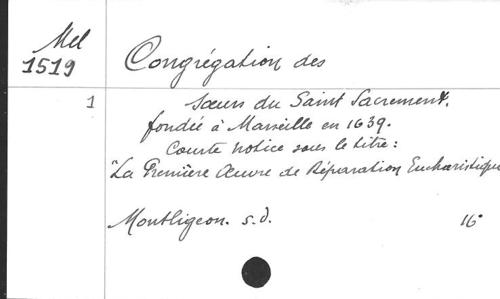 Mel
1519
Congrégation des
1
Sœurs du Saint Sacrement.
fondée à Marseille en 1639.
Courte notice sous le titre:
"La Première Œuvre de Réparation Eucharistique
Montligeon. s.d.
16°